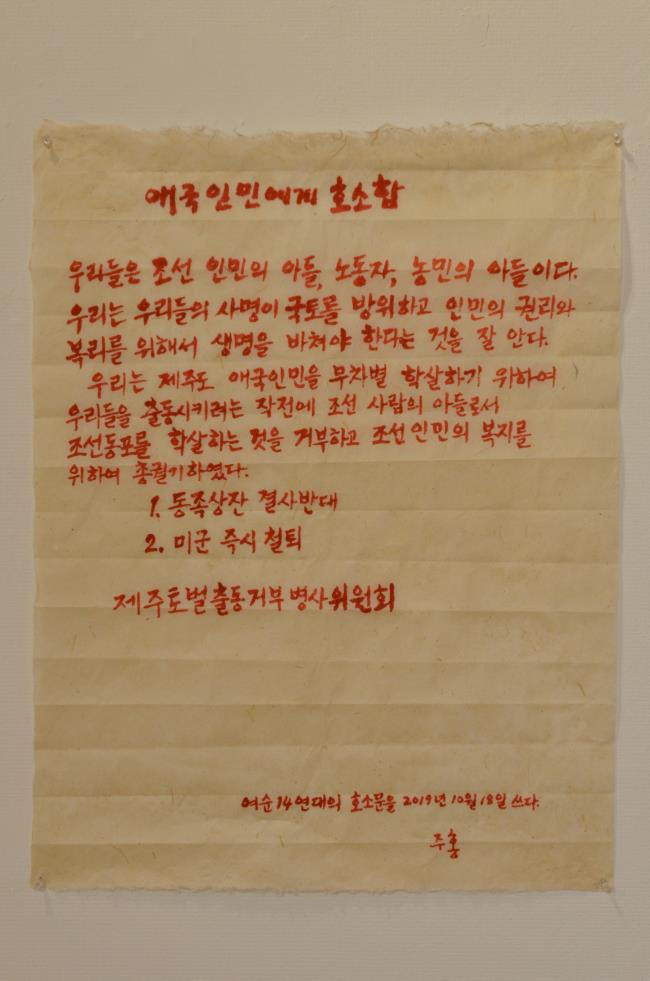 애국인민에게 호소함
우리들은 조선 인민의 아들, 노동자, 농민의 아들이다.
우리는 우리들의 사명이 국토를 방위하고 인민의 권리와
복리를 위해서 생명을 바쳐야 한다는 것을 잘 안다.
우리는 제주도 애국인민을 무차별 학살하기 위하여,
우리들을 출동시키려는 작전에 조선 사람의 아들로서
조선동포를 학살하는 것을 거부하고 조선 인민의 복지를
위하여 총궐기하였다.
1. 동족상잔 결사반대
2. 미군 즉시 철퇴
제주토벌출동거부 병사위원회
여순14연대의 호소문을 2019년 10월 18일 쓰다.
주홍